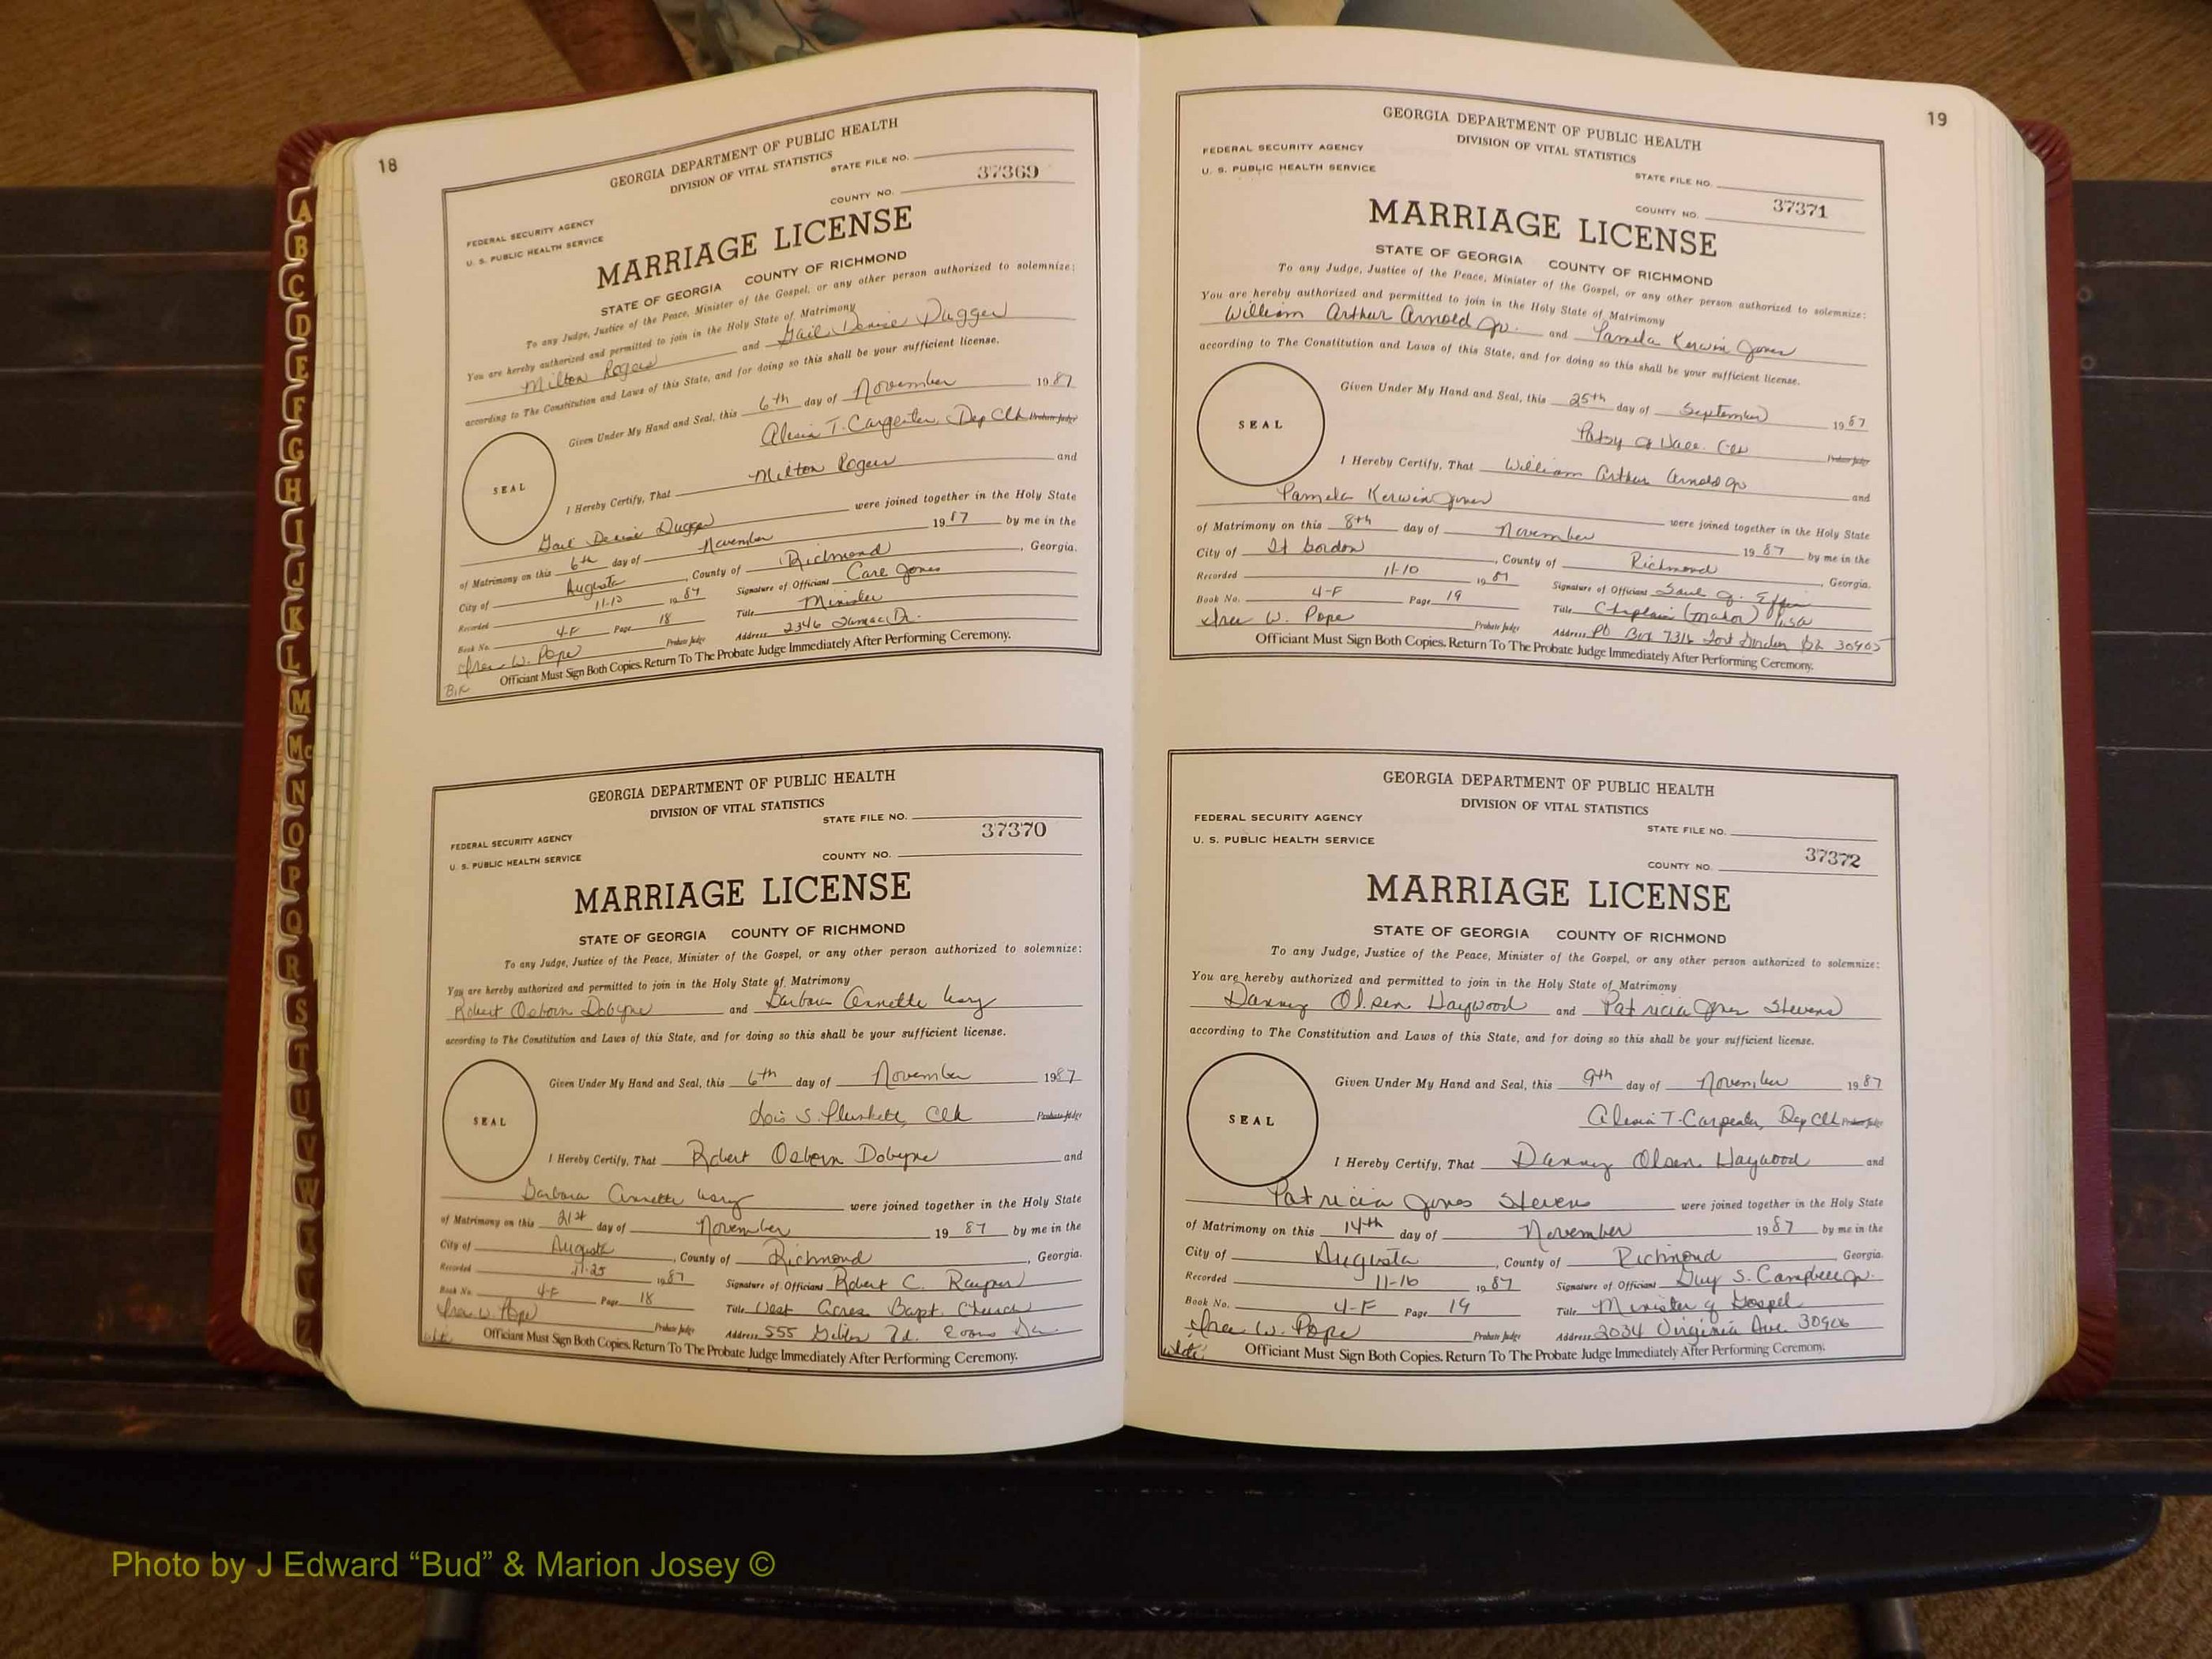 18
GEORGIA DEPARTMENT OF PUBLIC HEALTH
DIVISION OF VITAL STATISTICS
STATE FILE NO.
37369
COUNTY NO.
FEDERAL SECURITY AGENCY
U. S. PUBLIC HEALTH SERVICE
MARRIAGE LICENSE
STATE OF GEORGIA COUNTY OF RICHMOND
To any Judge, Justice of the Peace, Minister of the Gospel, or any other person authorized to solemnize:
You are hereby authorized and permitted to join in the Holy State of Matrimony
Milton Rogers and Gail Denise Dugger
according to The Constitution and Laws of this State, and for doing so this shall be your sufficient license.
Given Under My Hand and Seal, this 6th day of November 1987
Alesia T. Carpenter, Dep Clk Probate Judge
SEAL
I Hereby Certify, That Milton Rogers and
Gail Denise Dugger were joined together in the Holy State
of Matrimony on this 6th day of November 1987 by me in the
City of Augusta, County of Richmond, Georgia.
Recorded 11-12 1987 Signature of Officiant Jones
Book No. 4-F Page 18 Title Minister
W. Pope Probate Judge Address 2346 Dr.
Officiant Must Sign Both Copies. Return To The Probate Judge Immediately After Performing Ceremony.
GEORGIA DEPARTMENT OF PUBLIC HEALTH
DIVISION OF VITAL STATISTICS
STATE FILE NO.
37370
FEDERAL SECURITY AGENCY
U. S. PUBLIC HEALTH SERVICE
COUNTY NO.
MARRIAGE LICENSE
STATE OF GEORGIA COUNTY OF RICHMOND
To any Judge, Justice of the Peace, Minister of the Gospel, or any other person authorized to solemnize:
You are hereby authorized and permitted to join in the Holy State of Matrimony
Robert Osborn Dobyne and Barbara Annette
according to The Constitution and Laws of this State, and for doing so this shall be your sufficient license.
Given Under My Hand and Seal, this 6th day of November 1987
Lois S. Plunkett, Clk Probate Judge
SEAL
I Hereby Certify, That Robert Osborn Dobyne and
Barbara Annette were joined together in the Holy State
of Matrimony on this 21st day of November 1987 by me in the
City of Augusta, County of Richmond, Georgia.
Recorded 11-25 1987 Signature of Officiant Robert C.
Book No. 4-F Page 18 Title West Acres Bapt. Church
W. Pope Probate Judge Address 555 Rd. Evans Ga.
Officiant Must Sign Both Copies. Return To The Probate Judge Immediately After Performing Ceremony.
19
GEORGIA DEPARTMENT OF PUBLIC HEALTH
DIVISION OF VITAL STATISTICS
FEDERAL SECURITY AGENCY
U. S. PUBLIC HEALTH SERVICE
STATE FILE NO.
COUNTY NO. 37371
MARRIAGE LICENSE
STATE OF GEORGIA COUNTY OF RICHMOND
To any Judge, Justice of the Peace, Minister of the Gospel, or any other person authorized to solemnize:
You are hereby authorized and permitted to join in the Holy State of Matrimony
William Arthur Arnold Jr. and Pamela Kerwin Jones
according to The Constitution and Laws of this State, and for doing so this shall be your sufficient license.
Given Under My Hand and Seal, this 25th day of September 1987
Patsy Clk Probate Judge
SEAL
I Hereby Certify, That William Arthur Arnold Jr and
Pamela Kerwin Jones were joined together in the Holy State
of Matrimony on this 8th day of November 1987 by me in the
City of Ft Gordon, County of Richmond, Georgia.
Recorded 11-10 1987 Signature of Officiant
Book No. 4-F Page 19 Title Chaplain (Major) USA
W. Pope Probate Judge Address PO Box 7316 Fort Gordon Ga 30905
Officiant Must Sign Both Copies. Return To The Probate Judge Immediately After Performing Ceremony.
GEORGIA DEPARTMENT OF PUBLIC HEALTH
DIVISION OF VITAL STATISTICS
FEDERAL SECURITY AGENCY
U. S. PUBLIC HEALTH SERVICE
STATE FILE NO.
COUNTY NO. 37372
MARRIAGE LICENSE
STATE OF GEORGIA COUNTY OF RICHMOND
To any Judge, Justice of the Peace, Minister of the Gospel, or any other person authorized to solemnize:
You are hereby authorized and permitted to join in the Holy State of Matrimony
Danny Olsen Haywood and Patricia Jones Stevens
according to The Constitution and Laws of this State, and for doing so this shall be your sufficient license.
Given Under My Hand and Seal, this 9th day of November 1987
Alesia T. Carpenter, Dep Clk Probate Judge
SEAL
I Hereby Certify, That Danny Olsen Haywood and
Patricia Jones Stevens were joined together in the Holy State
of Matrimony on this 14th day of November 1987 by me in the
City of Augusta, County of Richmond Georgia.
Recorded 11-16 1987 Signature of Officiant Guy S. Campbell Jr.
Book No. 4-F Page 19 Title Minister of Gospel
W. Pope Probate Judge Address 2034 Virginia Ave. 30906
white Officiant Must Sign Both Copies. Return To The Probate Judge Immediately After Performing Ceremony.
A
B
C
D
E
F
G
H
I
J
K
L
M
Mc
N
O
P
Q
R
S
T
U
V
W
Photo by J Edward “Bud” & Marion Josey ©